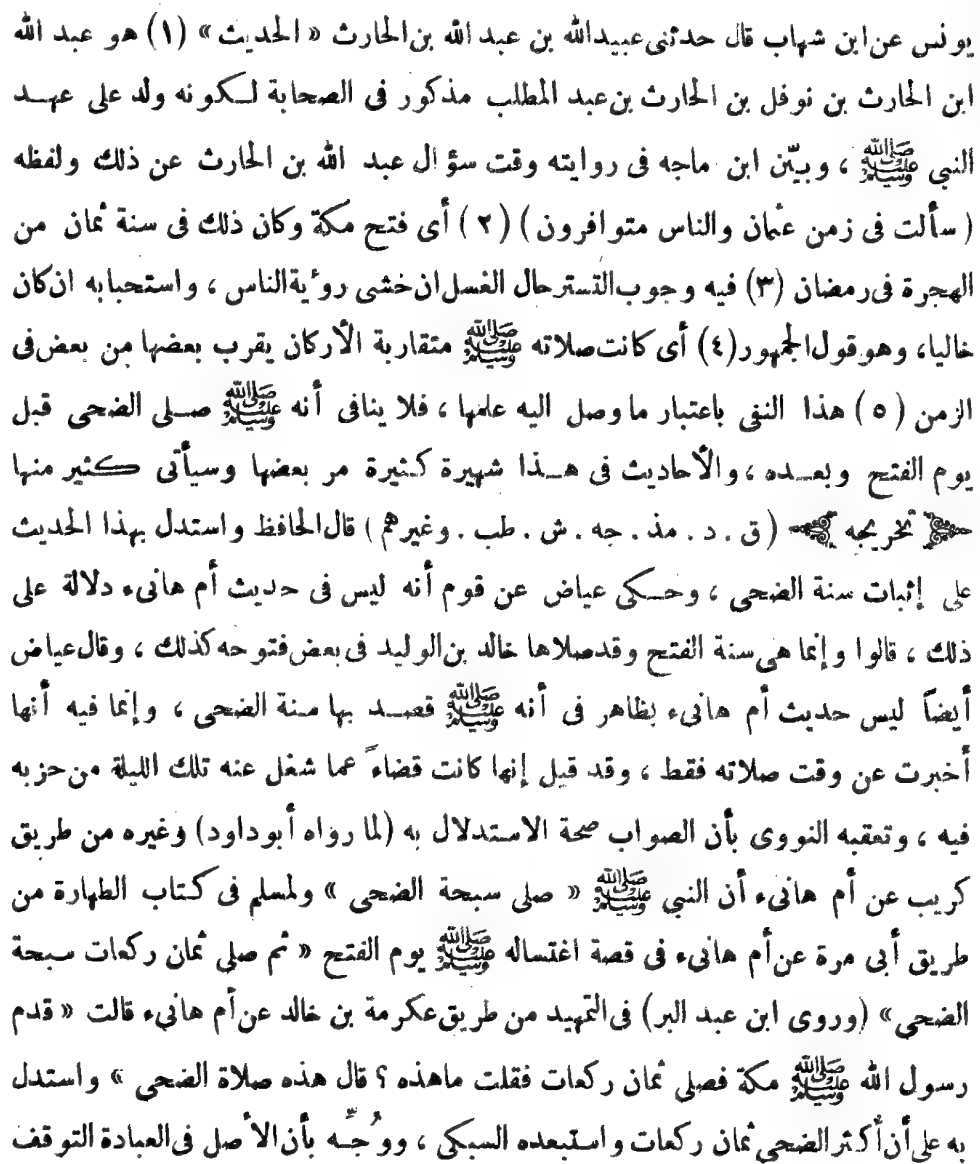 يونس عن ابن شهاب قال حدثنى عبيد الله بن عبد الله بن الحارث « الحديث » (١) هو عبد الله
ابن الحارث بن نوفل بن الحارث بن عبد المطلب مذكور فى الصحابة لكونه ولد على عهد
النبي ﷺ ، وبيّن ابن ماجه فى روايته وقت سؤال عبد الله بن الحارث عن ذلك ولفظه
( سألت فى زمن عثمان والناس متوافرون ) (٢) أى فتح مكة وكان ذلك فى سنة ثمان من
الهجرة فى رمضان (٣) فيه وجوب التستر حال الغسل ان خشى رؤية الناس ، واستحبابه ان كان
خاليا، وهو قول الجمهور (٤) أى كانت صلاته ﷺ متقاربة الأركان يقرب بعضها من بعض فى
الزمن (٥) هذا النفى باعتبار ما وصل اليه علمها ، فلا ينافى أنه ﷺ صلى الضحى قبل
يوم الفتح وبعده ، والأحاديث فى هذا شهيرة كثيرة مر بعضها وسيأتى كثير منها
﴿ تخريجه ﴾ ( ق . د . مذ . جه . ش . طب . وغيرهم ) قال الحافظ واستدل بهذا الحديث
على إثبات سنة الضحى ، وحكى عياض عن قوم أنه ليس فى حديث أم هانىء دلالة على
ذلك ، قالوا وإنما هى سنة الفتح وقد صلاها خالد بن الوليد فى بعض فتوحه كذلك ، وقال عياض
أيضاً ليس حديث أم هانىء بظاهر فى أنه ﷺ قصد بها سنة الضحى ، وإنما فيه أنها
أخبرت عن وقت صلاته فقط ، وقد قيل إنها كانت قضاءً عما شغل عنه تلك الليلة من حزبه
فيه ، وتعقبه النووى بأن الصواب صحة الاستدلال به (لما رواه أبو داود) وغيره من طريق
كريب عن أم هانىء أن النبي ﷺ « صلى سبحة الضحى » ولمسلم فى كتاب الطهارة من
طريق أبى مرة عن أم هانىء فى قصة اغتساله ﷺ يوم الفتح « ثم صلى ثمان ركعات سبحة
الضحى» (وروى ابن عبد البر) فى التمهيد من طريق عكرمة بن خالد عن أم هانىء قالت « قدم
رسول الله ﷺ مكة فصلى ثمان ركعات فقلت ماهذه ؟ قال هذه صلاة الضحى » واستدل
به على أن أكثر الضحى ثمان ركعات واستبعده السبكى ، ووُجِّه بأن الأصل فى العبادة التوقف